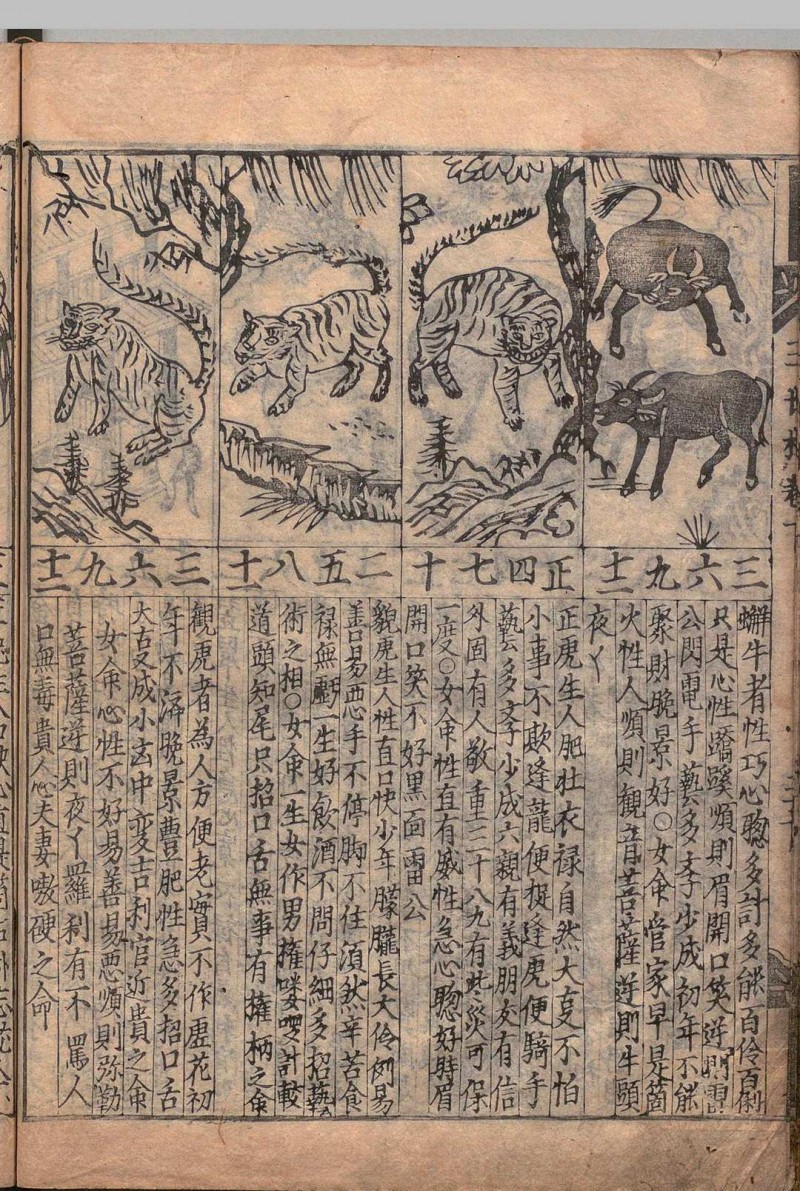 三六九十二
獬牛者性巧心聰多計多能百伶百俐
只是心性蹺蹊順則眉開口笑逆則雷
公閃電手藝多李少成初年不能
聚財晚景好〇女命管家早是箇
火性人順則観音菩薩逆則牛頭
夜丫
正四七十
正虎生人肥壯衣禄自然大㪅不怕
小事不欺逢龍便捉逢虎便騎手
藝多李少成六親有義朋友有信
外面有人敬重三十八九有此災可保
一度〇女命性直有威性急心聰好時眉
開口笑不好黒面雷公
二五八十一
貌虎生人性直口快少年朦朧長大伶俐易
善易惡手不停胸不住須然辛苦食
禄無虧一生好飲酒不問仔細多招藝
術之相〇女命一生女作男權嘍啰計較
道頭知尾只招口舌無事有權柄之命
三六九十二
觀虎者為人方便老實不作虛花初
年不濟晚景豊肥性急多招口舌
大㪅成小凶中変吉利官近貴之命
女命心性不好易善易惡順則弥勒
菩薩逆則夜丫羅刹有不罵人
口無毒貴人心夫妻嗷硬之命
三世相卷下